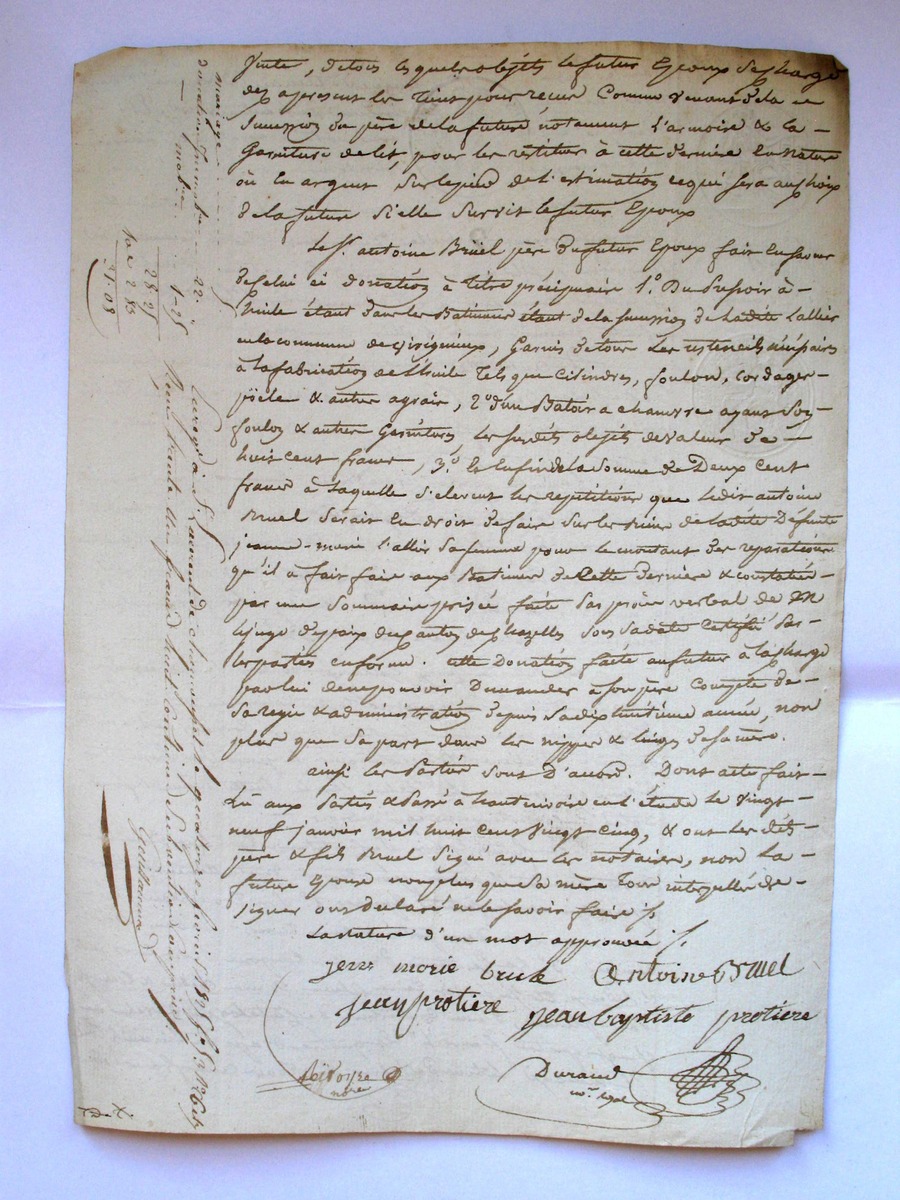 Vente, de tous lesquels objets le futur Epoux se charge
des apresent les tient pour recu Comme venant de la
Succession du père de la future notament l'armoire & la
Garniture de lit, pour les restituer à cette derniere en nature
où En argent Sur le pied de l'estimation ce qui sera au choix
de la future Si elle Survit le futur Epoux
Le Sr. antoine Bruel père du futur Epoux fait En faveur
de celui ci donation à titre préciputaire 1º. Du Pressoir à
huile étant dans les Batiments étant de la succession de ladite Lallier
en la commune de virigneux, Garnis de tous les ustenciles necessaires
à la fabrication de l'huile tels que Cilindres, foulon, cordages
poële & autres agrais, 2º d'un Batoir a chanvre ayant Son
foulon & autres Garnitures, les susdits objets de valeur de
huit cent francs, 3º. Et Enfin de la Somme de Deux Cent
francs à laquelle S'elevent les repetitions que ledit antoine
Bruel Serait En droit de faire Sur les Biens de ladite Défunte
jeanne-marie l'allier Sa femme pour le montant des reparations
qu'il à fait faire aux Batiments de Cette derniere & constatées
par une Sommaire prisée faite par procès verbal de M
le juge de paix du canton de chazelles Sous Sa date Certifié par
les parties en forme. Cette Donation faite au futur à la charge
par lui de ne pouvoir Demander à Son père Compte de
Sa regie & administration depuis Sa dix huitieme année, non
plus que Sa part dans les nippes & linges de Sa mère.
ainsi les Parties Sont D'accord. Dont acte fait
Lû aux Parties & Passé à hauterivoire en l'étude le vingt
neuf janvier mil huit Cent vingt Cinq, & ont les dits
père & fils Bruel Signé avec les notaires, non la
future Epouse non plus que Sa mère Tous interpellés de
signer ont declaré ne le Savoir faire
La rature d'un mot approuvée
jean marie bruel Antoine Bruel
jean protiere jean baptiste protiere
Durand
nre. royal
mariage 22
donation 1-25
28-25
10e 2 83
31.08
Enregé à St. Laurent de chamousset le quatre fevrier 1825
Reçu trente un francs huit centimes